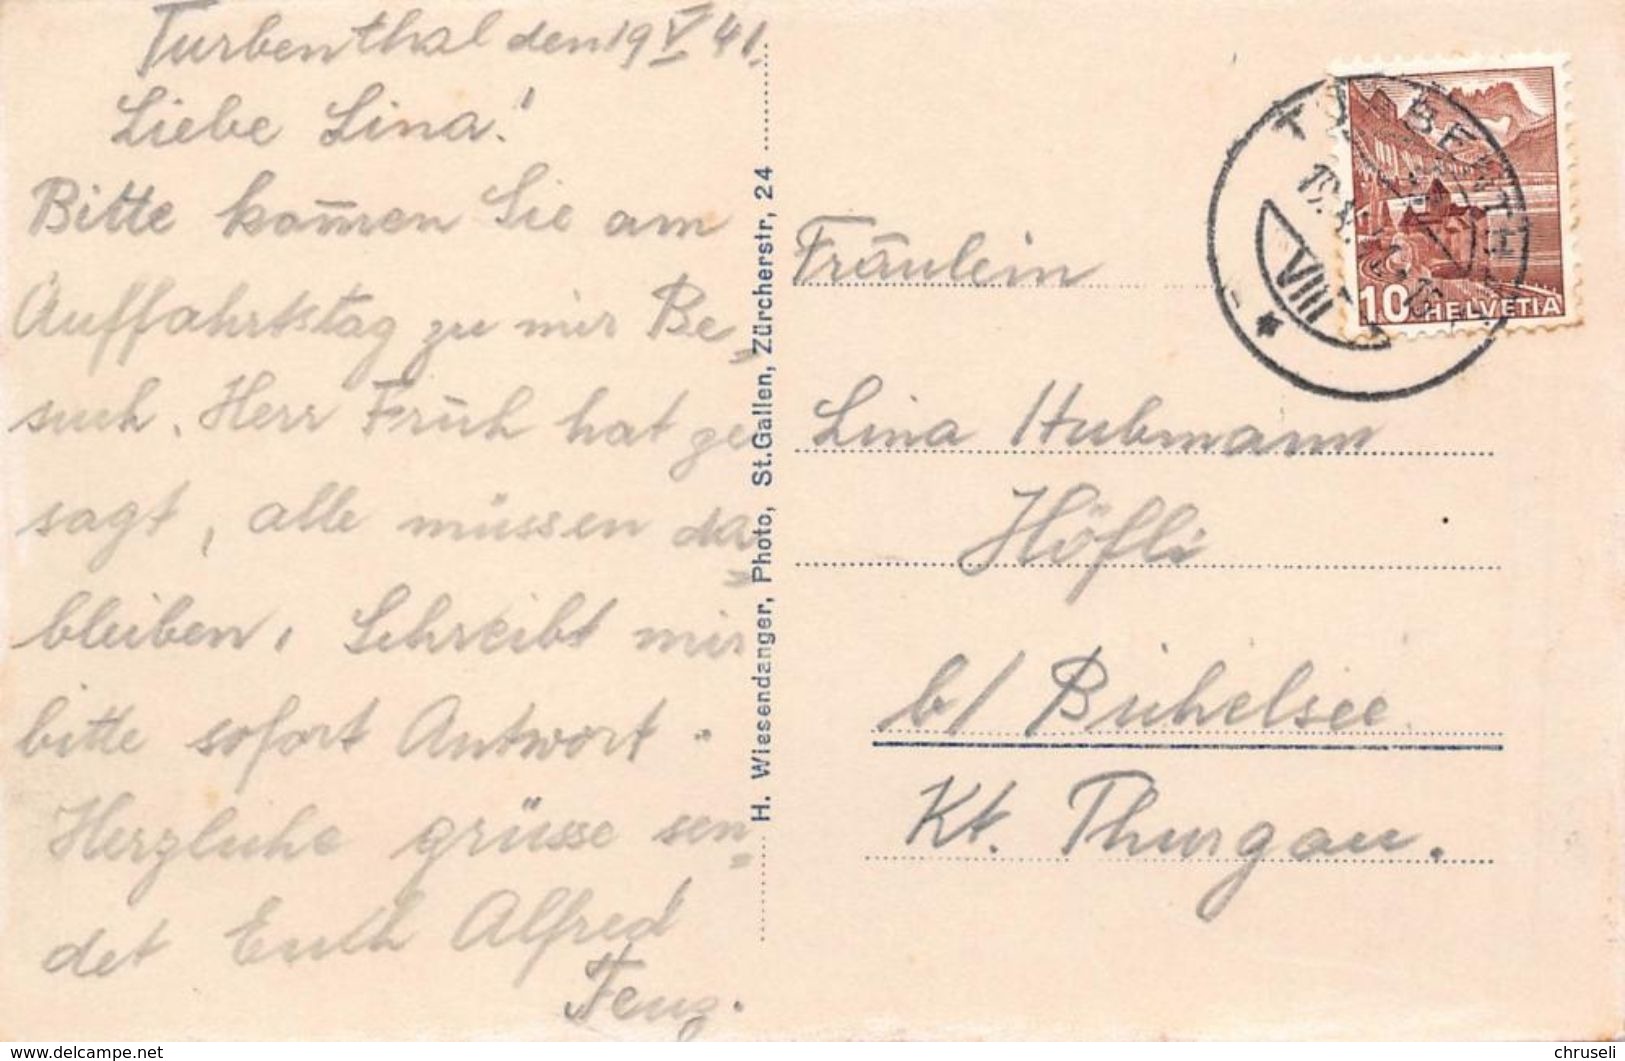 Turbenthal den 19 V 41.
Liebe Lina!
Bitte kom̅en Sie am
Auffahrtstag zu mir Be=
such. Herr Früh hat ge
sagt, alle müssen da=
bleiben. Schreibt mir
bitte sofort Antwort.
Herzliche grüsse sen=
det Euch Alfred
Fenz.
H. Wiesendanger, Photo, St. Gallen, Zürcherstr. 24
VIII
10 HELVETIA
Fräulein
Lina Hubmann
Höfli
b/ Bichelsee
Kt. Thurgau.
https://www.delcampe.net
chruseli